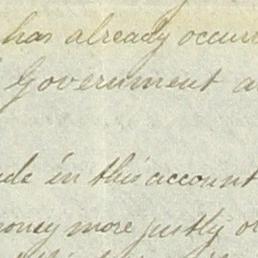 has already occurr
Government a
in this account
money more justly or